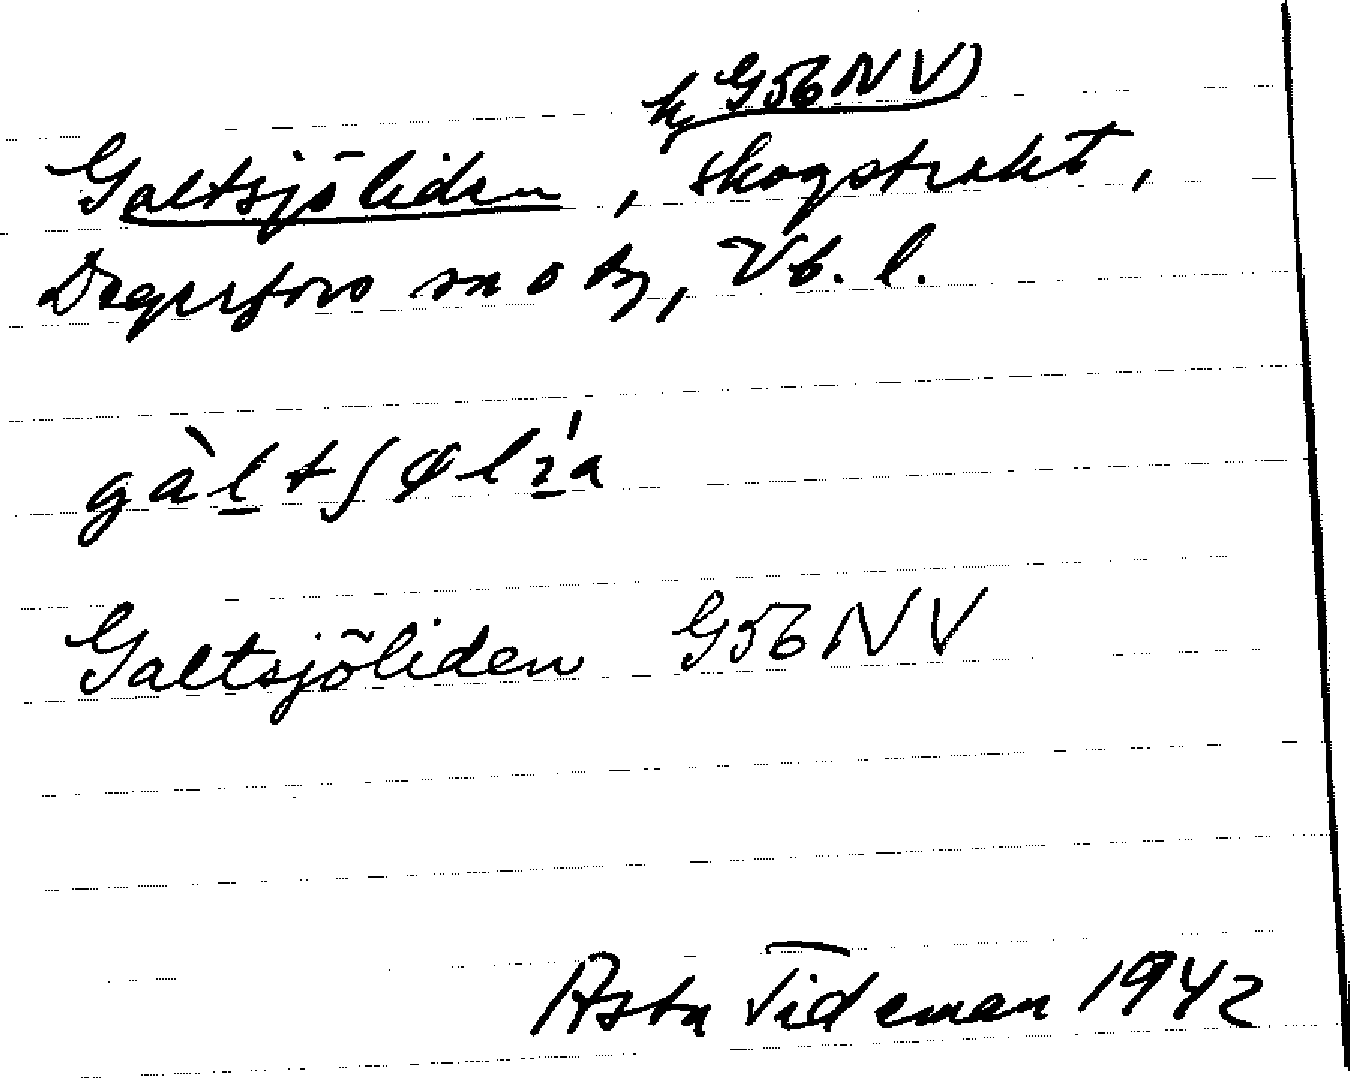 k G56NV)
Galtsjöliden, skogstrakt,
Degerfors sn o by, Vb. l.
gàltʃølı́a
Galtsjöliden G56NV
Asta Tideman 1942